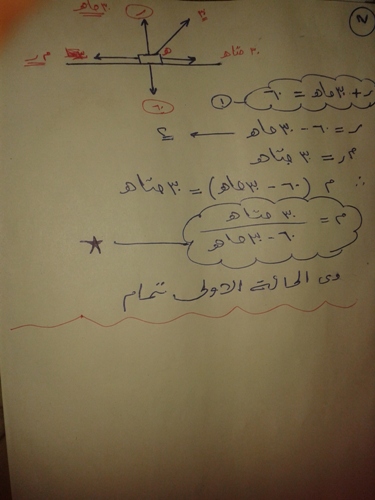 ٢
٣٠ حاهـ
٣٠
ر
هـ
٣٠ حتاهـ
م ر
٦٠
ر + ٣٠ حاهـ = ٦٠ ١
ر = ٦٠ - ٣٠ حاهـ ← ٢
م ر = ٣٠ حتاهـ
∴ م (٦٠ - ٣٠ حاهـ) = ٣٠ حتاهـ
م = ٣٠ حتاهـ
٦٠ - ٣٠ حاهـ
وهى الحالة الاولى تمام